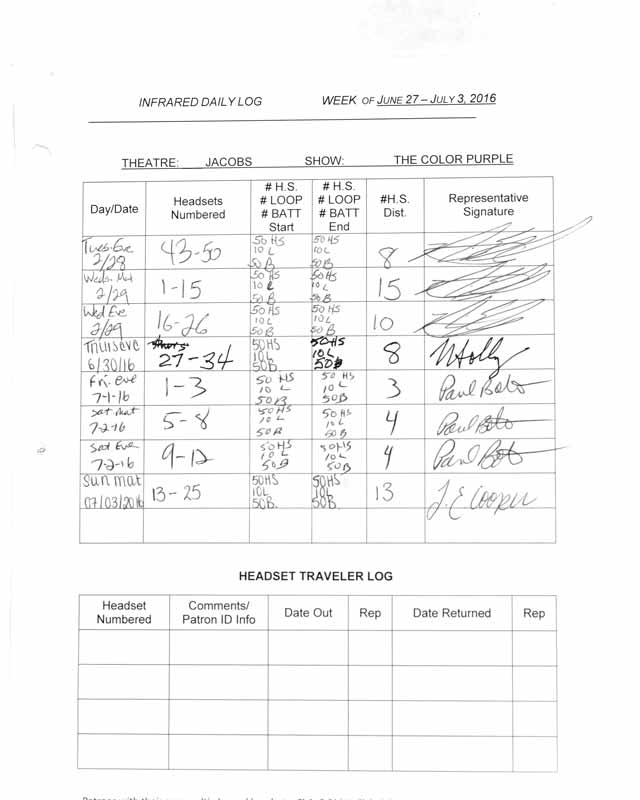 INFRARED DAILY LOG WEEK OF JUNE 27 – JULY 3, 2016
THEATRE: JACOBS SHOW: THE COLOR PURPLE
Day/Date Headsets Numbered # H.S. # LOOP # BATT Start # H.S. # LOOP # BATT End #H.S. Dist. Representative Signature
Tues. Eve 2/28 43-50 50 HS 10 L 50 B 50 HS 10 L 50 B 8
Weds. Mat 2/29 1-15 50 HS 10 L 50 B 50 HS 10 L 50 B 15
Wed Eve 2/29 16-26 50 HS 10 L 50 B 50 HS 10 L 50 B 10
Thurs eve 6/30/16 27-34 50HS 10L 50B 50HS 10L 50B 8 N Holly
Fri. eve 7-1-16 1-3 50 HS 10 L 50B 50 HS 10 L 50B 3 Paul
Sat mat 7-2-16 5-8 50HS 10 L 50B 50HS 10 L 50B 4 Paul
Sat Eve 7-2-16 9-12 50HS 10L 50B 50HS 10L 50B 4 Paul
Sun mat 07/03/2016 13-25 50HS 10L 50B. 50HS 10L 50B. 13 J. E. Cooper
HEADSET TRAVELER LOG
Headset Numbered Comments/ Patron ID Info Date Out Rep Date Returned Rep